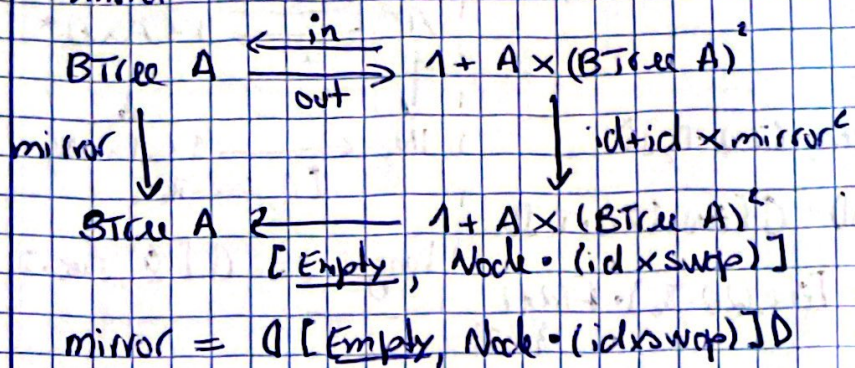 in
BTree A 1 + A × (BTree A)²
out
mirror id+id × mirror²
BTree A 1 + A × (BTree A)²
[Empty, Node · (id × swap)]
mirror = ⦇[Empty, Node · (id×swap)]⦈